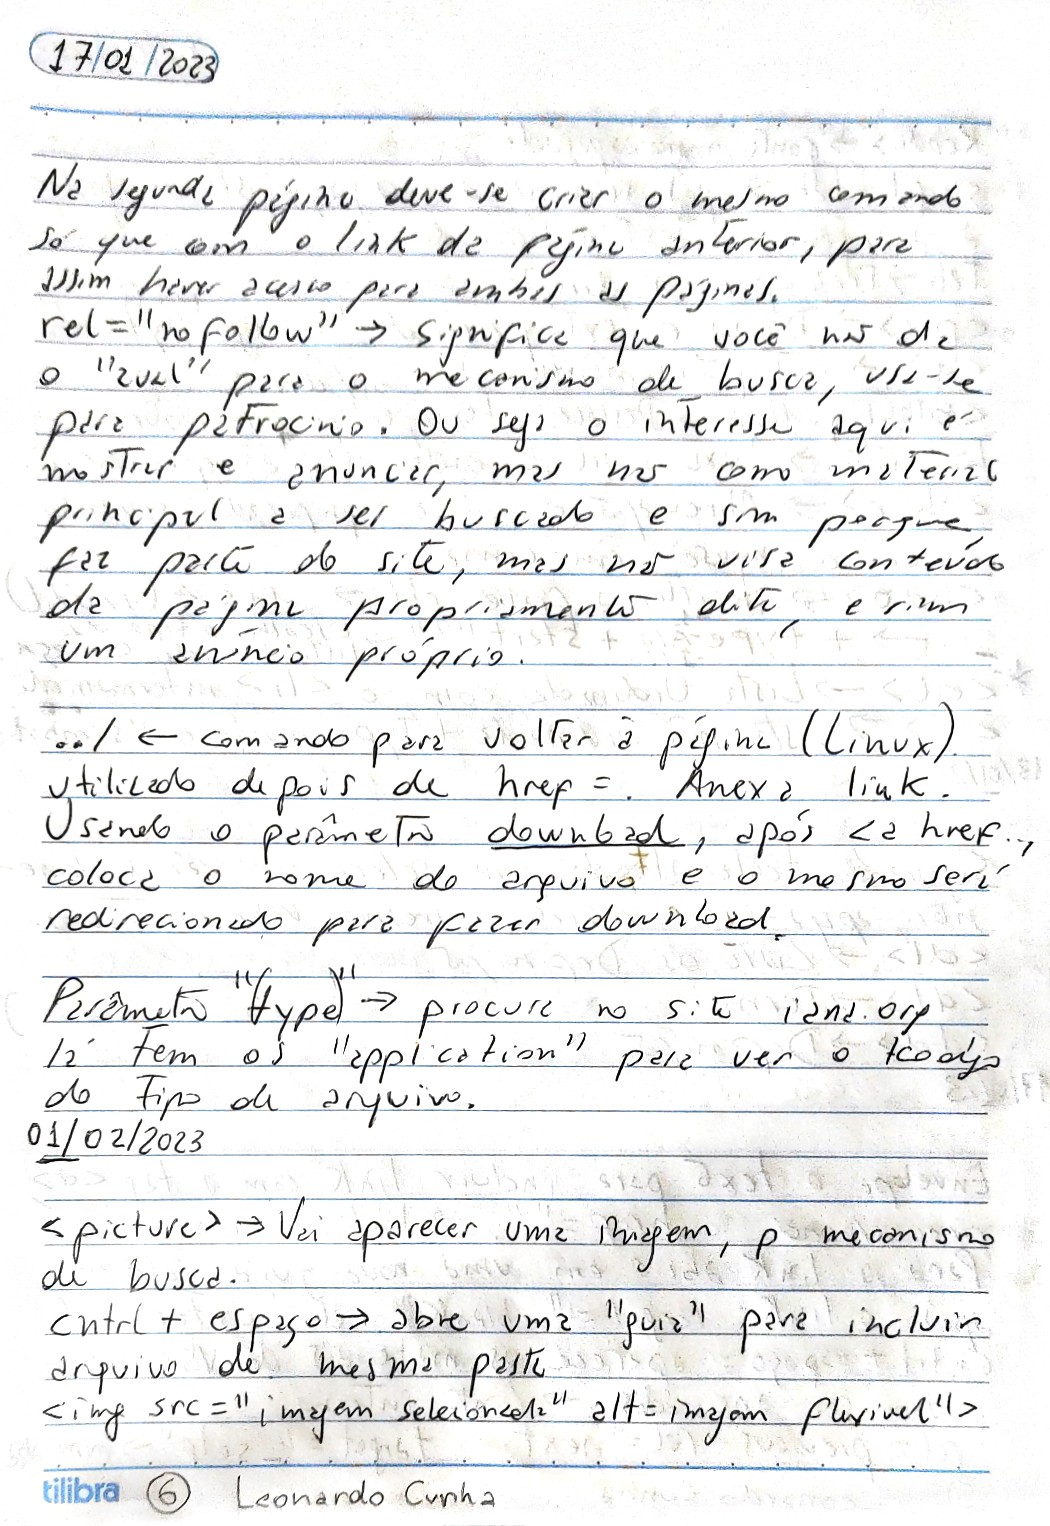 17/01/2023
Na segunda página deve-se criar o mesmo comando
só que com o link da página anterior, para
assim haver acesso para ambas as páginas.
rel="nofollow" → significa que você não da
o "aval" para o mecanismo de busca, usa-se
para patrocinio. Ou seja o interesse aqui é
mostrar e anunciar, mas não como material
principal a ser buscado e sim porque,
faz parte do site, mas não visa conteúdo
da página propriamente dita, e sim
um anúncio próprio.
../ ← comando para voltar à página (Linux).
utilizado depois de href =. Anexa link.
Usando o parâmetro download, após <a href..,
coloca o nome do arquivo e o mesmo será
redirecionado para fazer download.
Parâmetro "(type)" → procure no site iana.org
lá tem os "application" para ver o código
do tipo de arquivo.
01/02/2023
<picture> → Vai aparecer uma imagem, p mecanismo
de busca.
cntrl + espaço → abre uma "guia" para incluir
arquivo da mesma pasta
<img src="imagem selecionada" alt=imagem flexivel">
tilibra 6 Leonardo Cunha